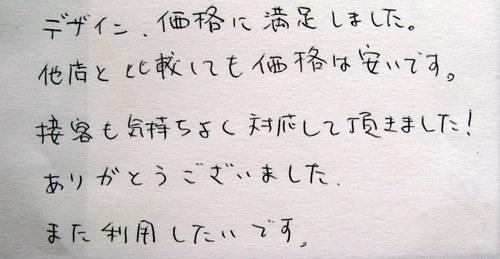 デザイン、価格に満足しました。
他店と比較しても価格は安いです。
接客も気持ちよく対応して頂きました!
ありがとうございました.
また利用したいです。